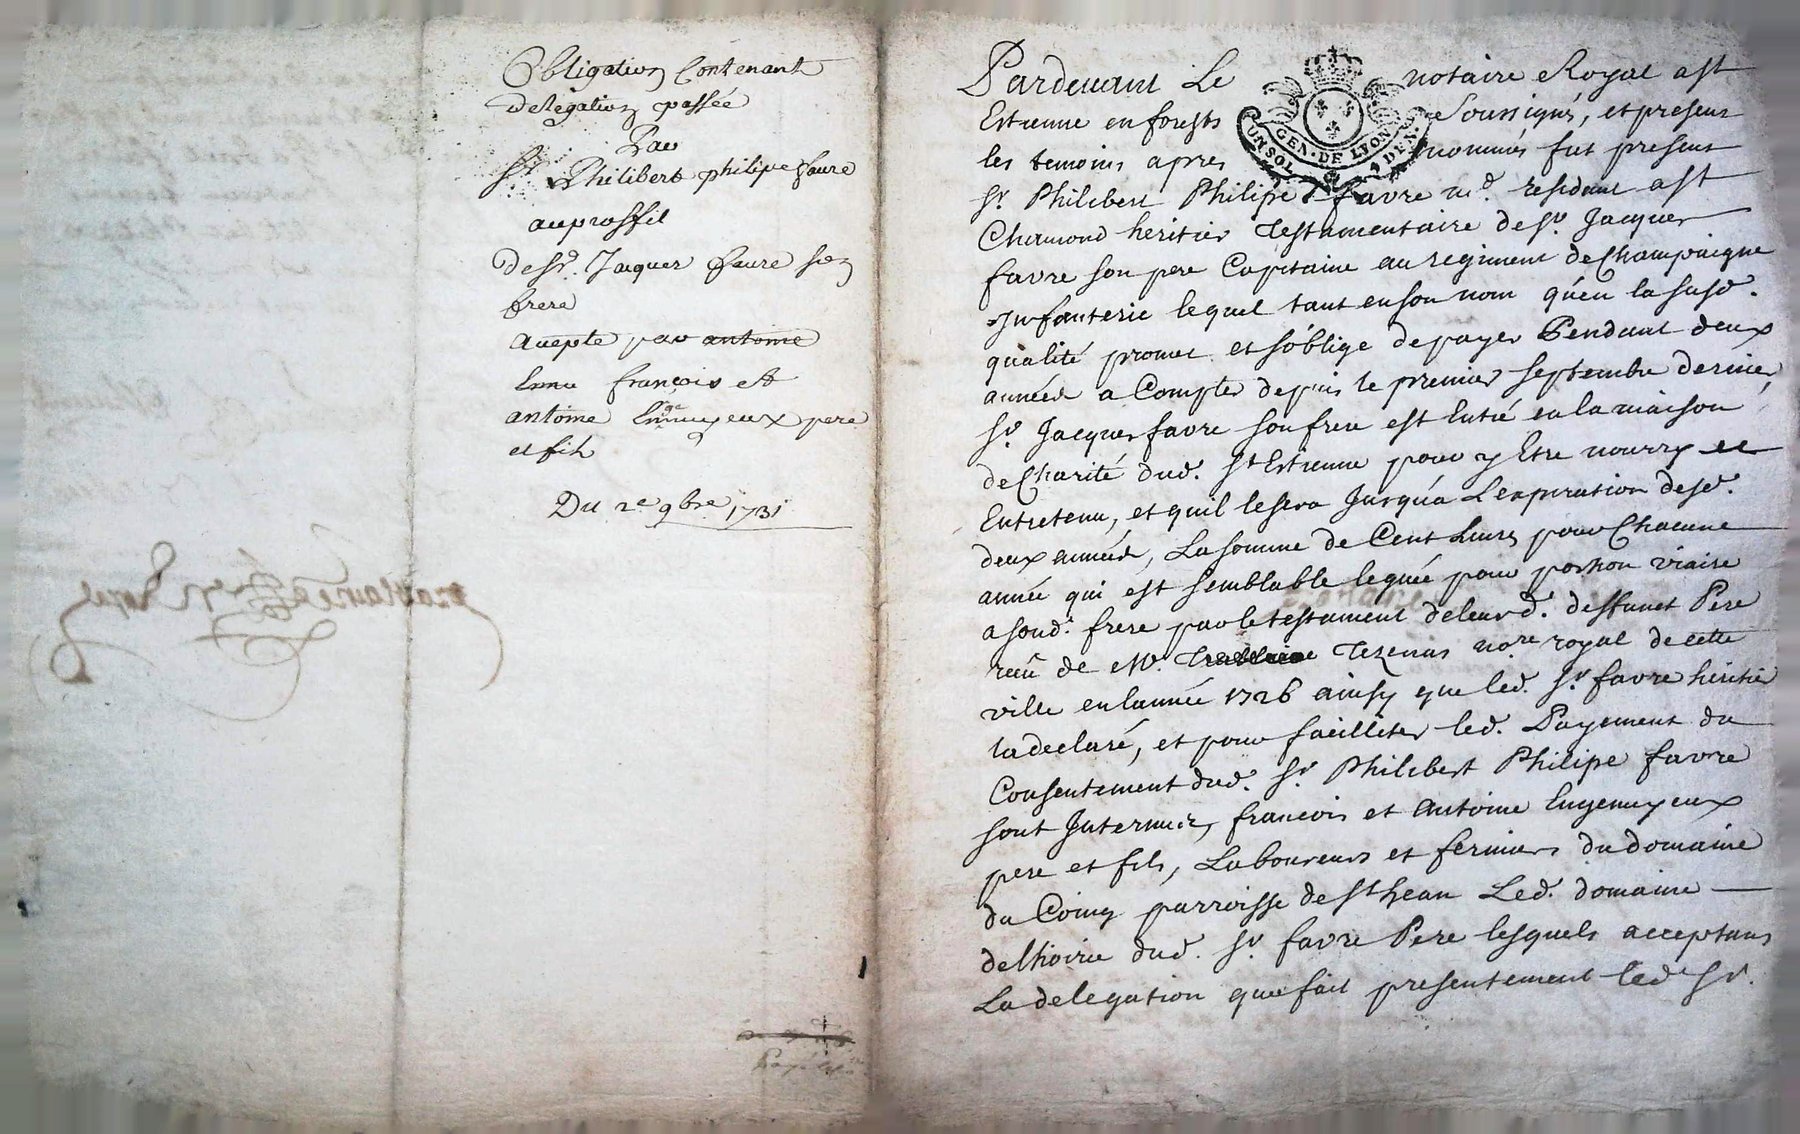 Obligation Contenant
delegation passée
Par
Sr. Philibert philipe faure
au proffit
de Sr. Jaques faure son
frere
accepte par antoine
Ennu françois et
antoine Ennuyeux pere
et fils
Du 2e 9bre 1731
Pardevant Le notaire Royal a St
Estienne en forests Soussigné, et presens
les temoins apres nommés fut present
Sr. Philibert Philipe favre md. residant a St
Chamond heritier Testamentaire de Sr. Jacques
favre son pere Capitaine au regiment de Champaigne
Infanterie lequel tant en son nom qu'en la susd.
qualité promet et s'oblige de payer Pendant deux
années a Compter depuis le premier septembre dernier,
Sr. Jacques favre son frere est Entré en la maison
de Charité dud. St Estienne pour y Etre nourry et
Entretenu, et quil le sera Jusqu'a L'expiration desd.
deux années, La somme de Cent Livres pour Chacune
année qui est semblable leguée pour portion viaire
a sond. frere par le testament de leurd. deffunct Pere
reçu de Me. Tezenas nore royal de cette
ville en l'année 1726 ainsy que led. Sr. favre héritier
la declaré, et pour facilliter led. Payement du
Consentement dud. Sr. Philibert Philipe favre
sont Intervenus, francois et Antoine Engenuyeux
pere et fils, Laboureurs et fermiers du domaine
du Coing parroisse de St Jean Led. domaine
de l'hoirie dud. Sr. favre Pere lesquels acceptans
La delegation que fait presentement led. Sr.
UN SOL
GEN. DE LYON
4 DEN.